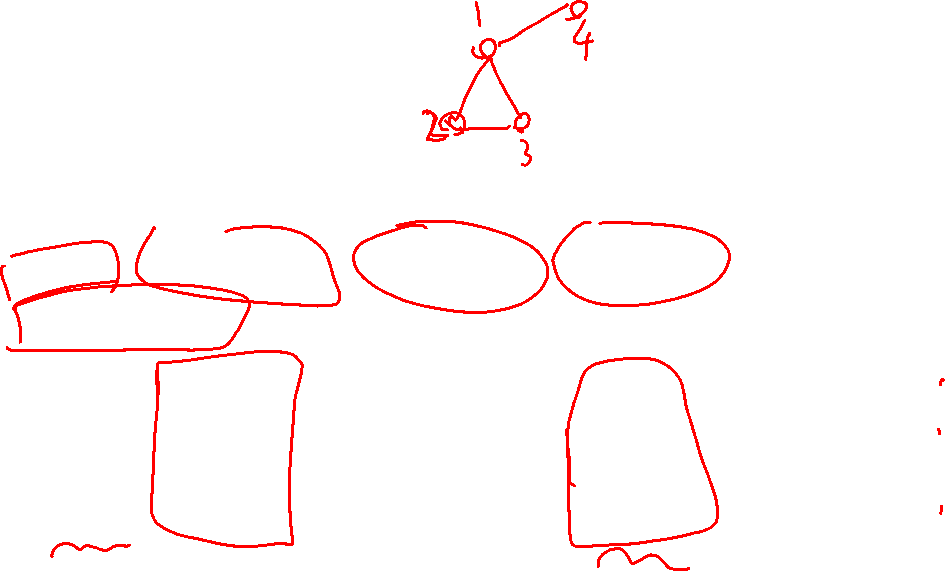 1
4
2
3